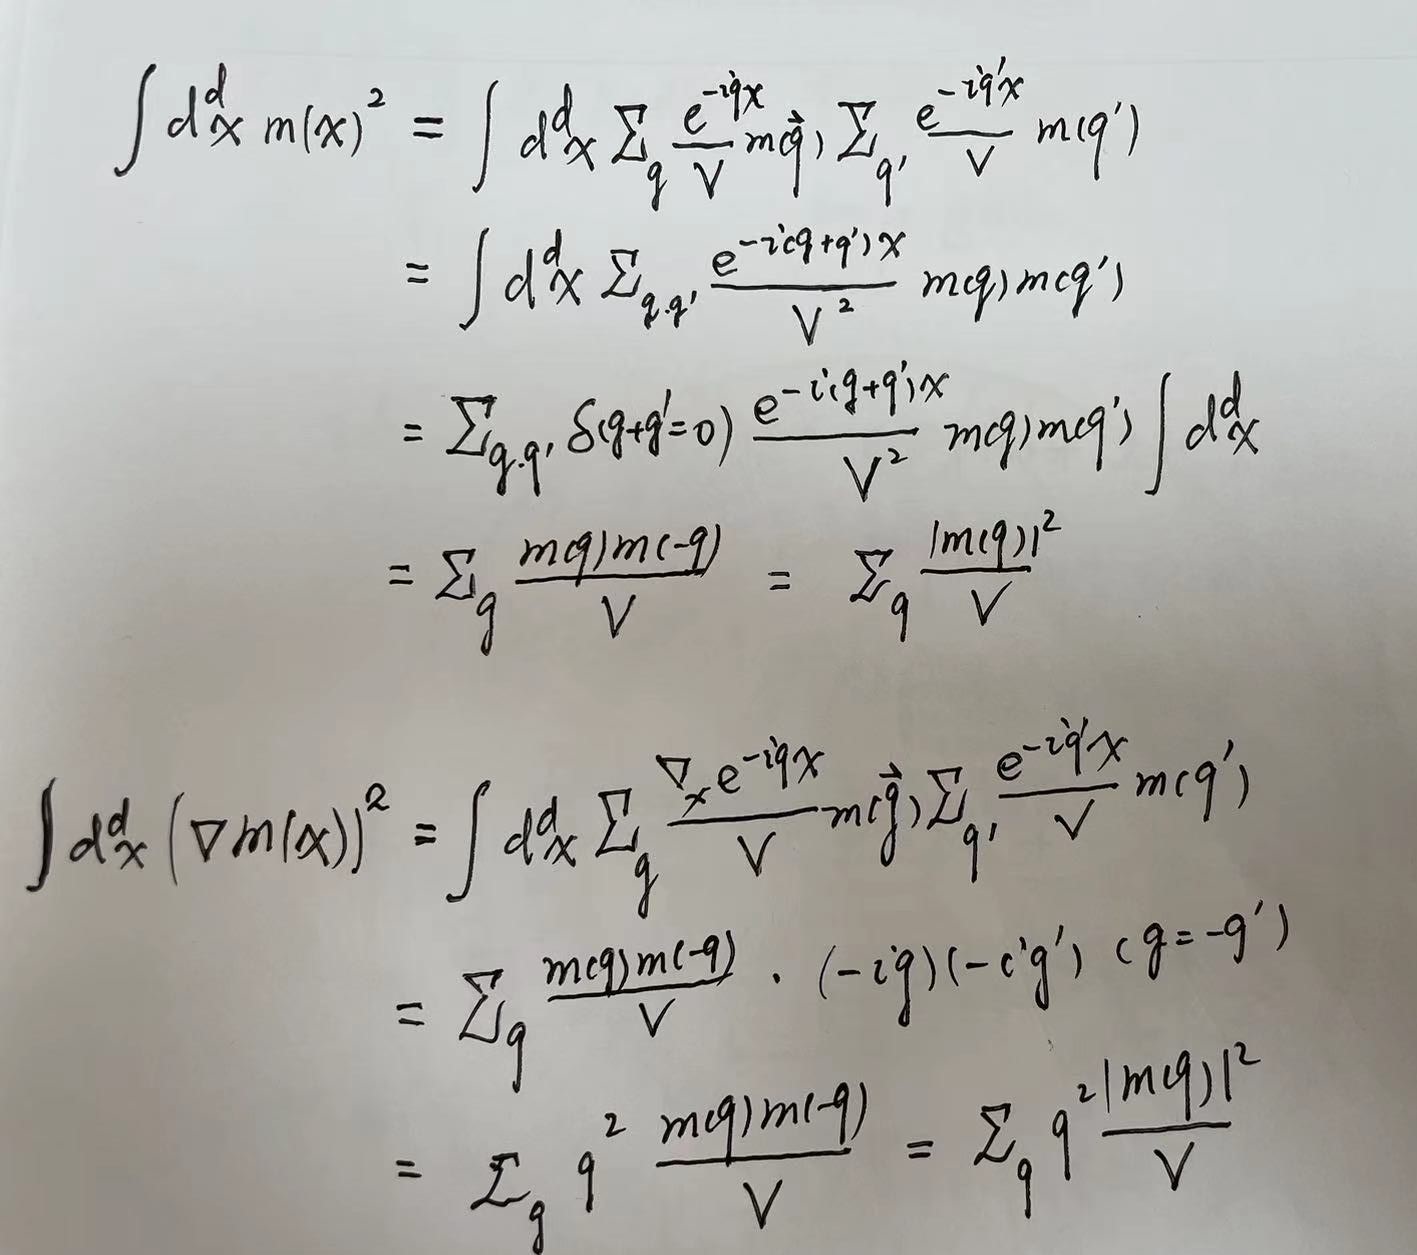 ∫ dᵈx m(x)² = ∫ dᵈx Σ_q e^{-iqx}/V m(q⃗) Σ_q' e^{-iq'x}/V m(q')
= ∫ dᵈx Σ_q.q' e^{-i(q+q')x}/V² m(q) m(q')
= Σ_q.q' δ(q+q'=0) e^{-i(q+q')x}/V² m(q) m(q') ∫ dᵈx
= Σ_q m(q)m(-q)/V = Σ_q |m(q)|²/V
∫ dᵈx (∇m(x))² = ∫ dᵈx Σ_q ∇ₓe^{-iqx}/V m(q⃗) Σ_q' e^{-iq'x}/V m(q')
= Σ_q m(q)m(-q)/V · (-iq)(-iq') (q=-q')
= Σ_q q² m(q)m(-q)/V = Σ_q q² |m(q)|²/V